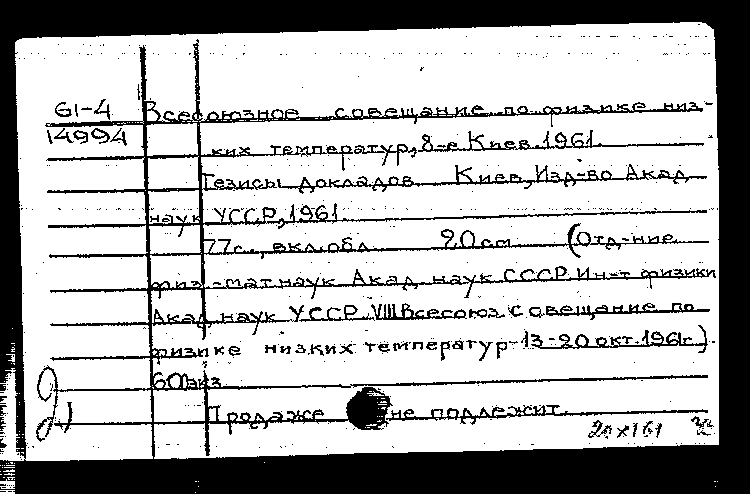 61-4 Всесоюзное совещание по физике низ-
14994
ких температур, 8-е Киев. 1961.
Тезисы докладов. Киев, Изд-во Акад.
наук УССР, 1961.
77 с., вкл. обл. 20 см. (Отд-ние
физ.-мат наук Акад. наук СССР. Ин-т физики
Акад. наук УССР. VIII Всесоюз. совещание по
физике низких температур - 13-20 окт. 1961г.).
600 экз.
Продаже не подлежит.
20 x 161